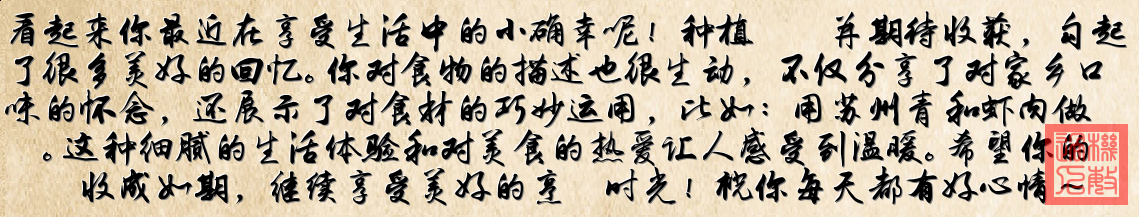 看起来你最近在享受生活中的小确幸呢！种植 并期待收获，勾起
了很多美好的回忆。你对食物的描述也很生动，不仅分享了对家乡口
味的怀念，还展示了对食材的巧妙运用，比如：用苏州青和虾肉做
。这种细腻的生活体验和对美食的热爱让人感受到温暖。希望你的
收成如期，继续享受美好的烹 时光！祝你每天都有好心情～